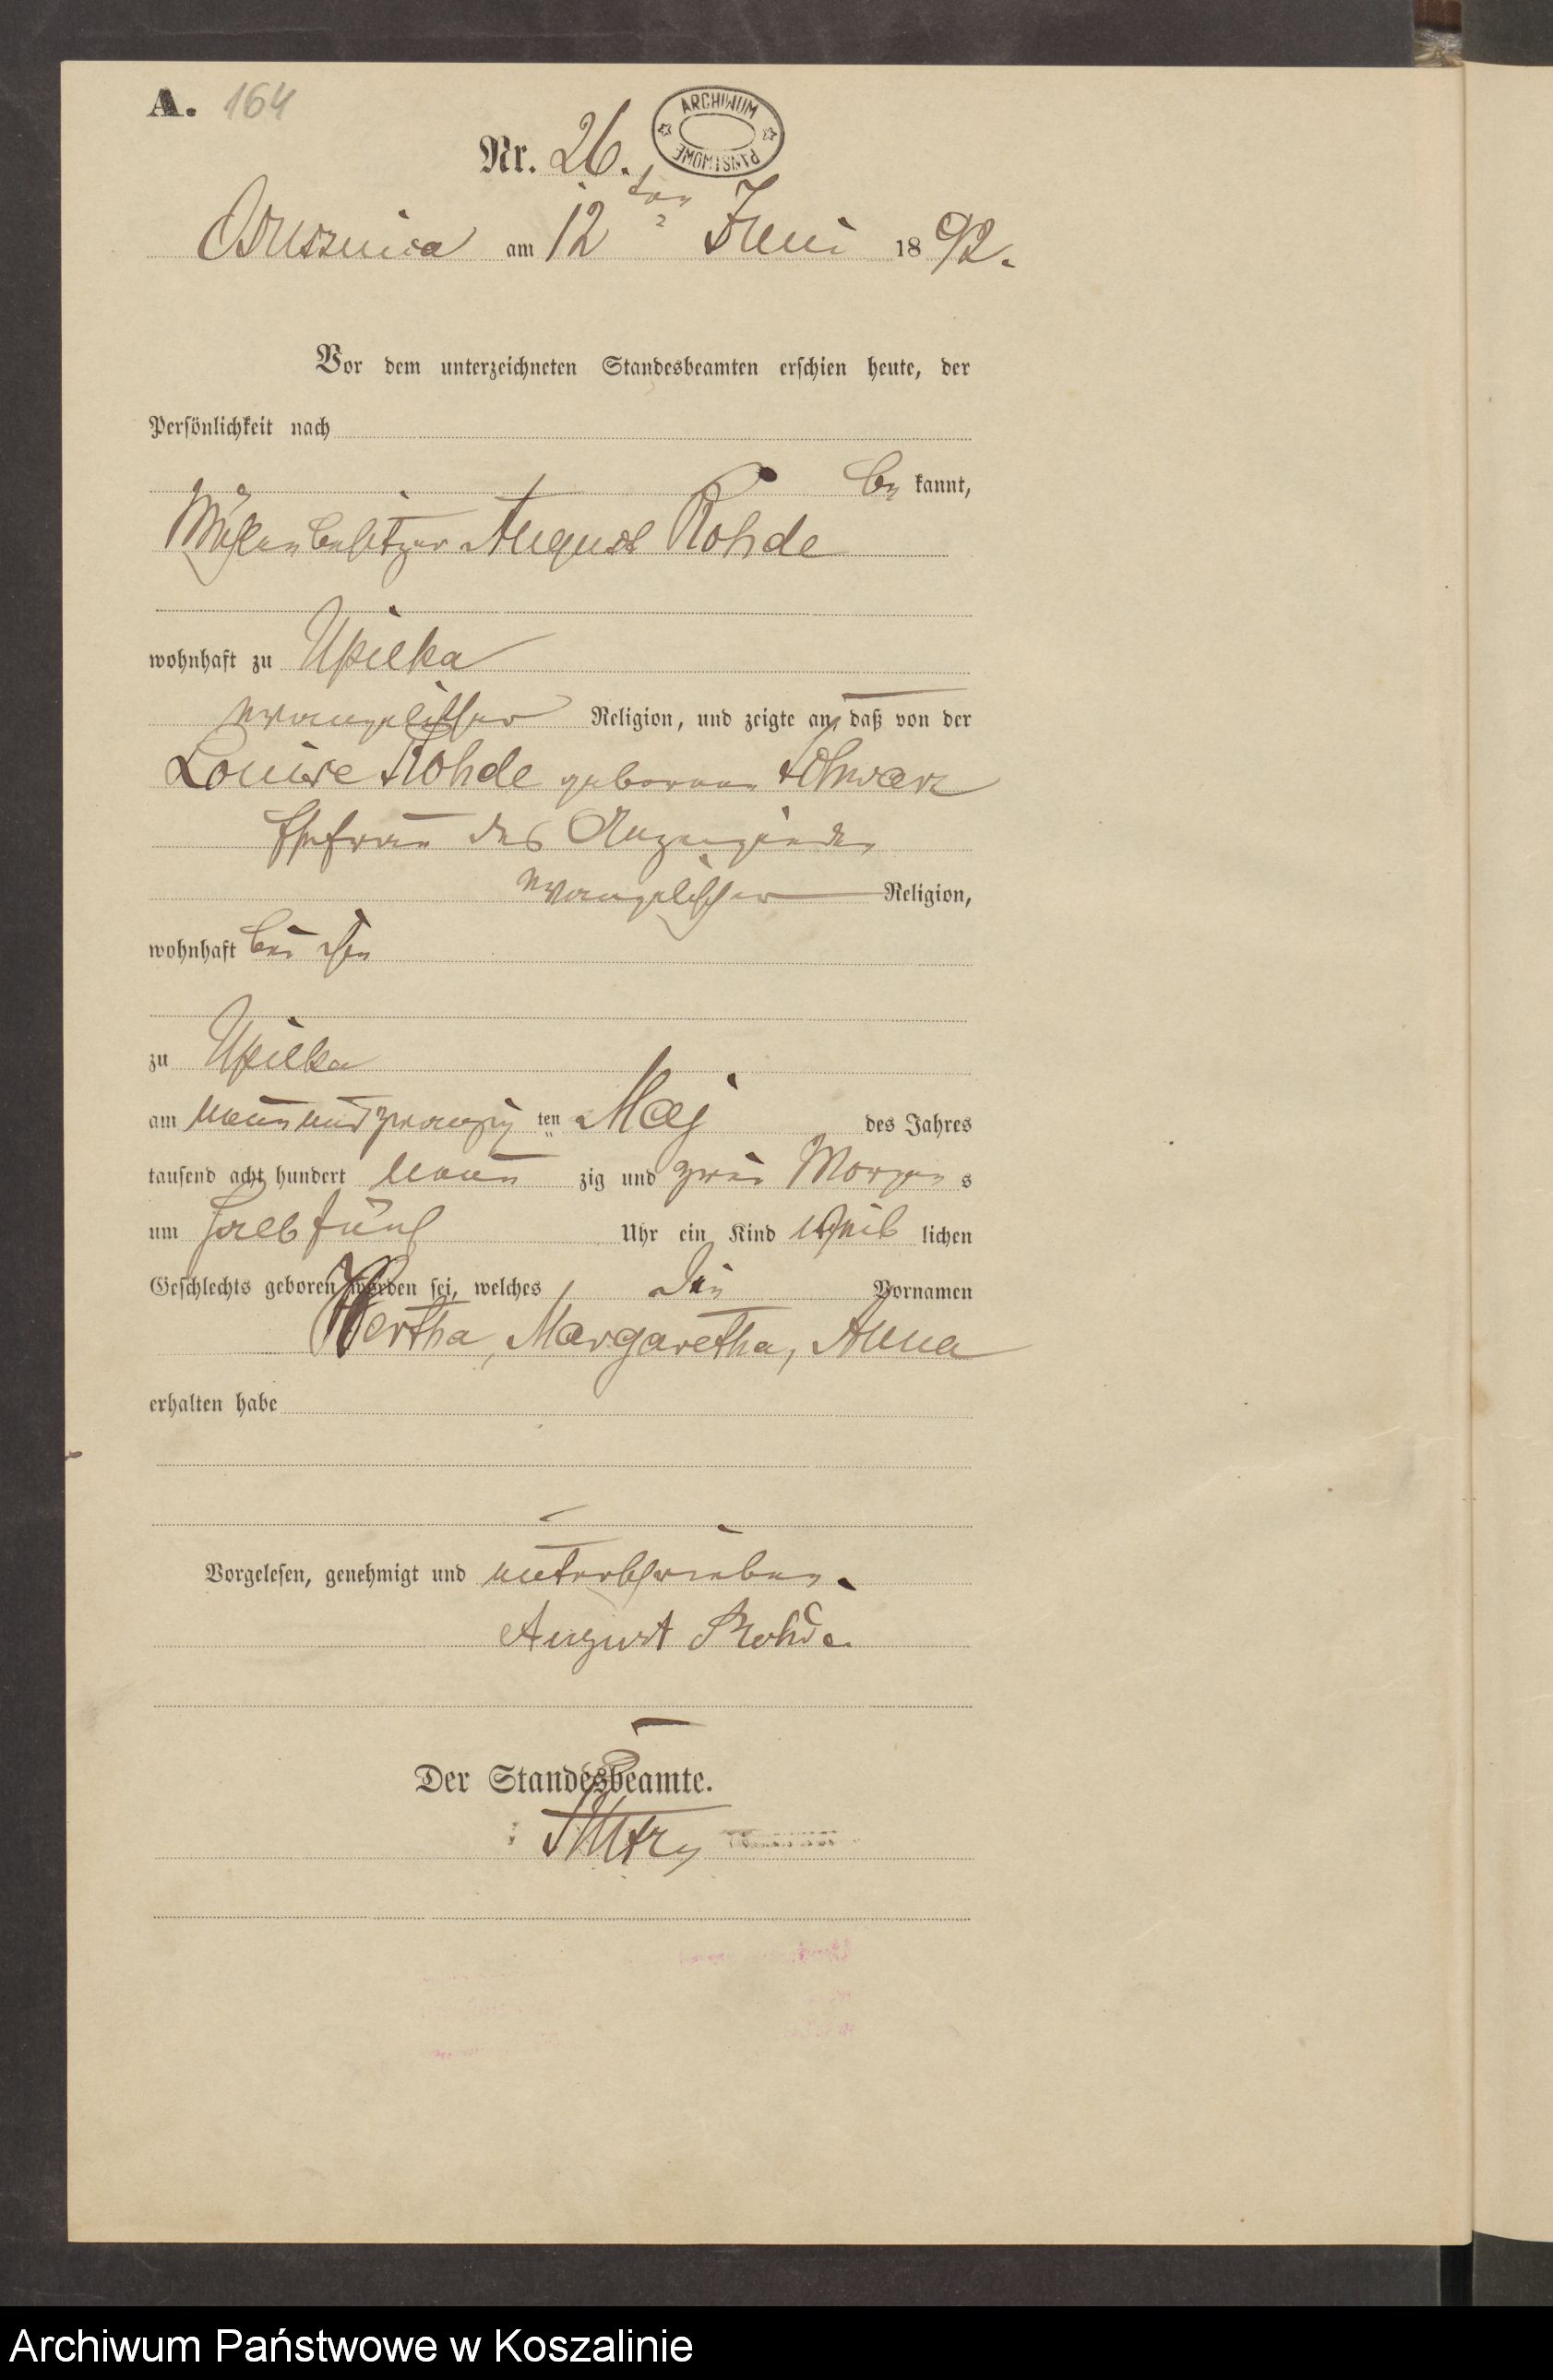 A. 164
Nr. 26.
ARCHIWUM PAŃSTWOWE
am 12ten Juni 1892.
Vor dem unterzeichneten Standesbeamten erschien heute, der
Persönlichkeit nach
be kannt,
Mühlenbesitzer August Rohde
wohnhaft zu Upilka
evangelischer Religion, und zeigte an, daß von der
Louise Rohde geborene Schwarz
Ehefrau des Anzeigenden
evangelischer Religion,
wohnhaft bei ihm
zu Upilka
am neun und zwanzig ten Maj des Jahres
tausend acht hundert neun zig und zwei Morgens
um halb fünf Uhr ein Kind weib lichen
Geschlechts geboren worden sei, welches die Vornamen
Hertha, Margaretha, Anna
erhalten habe
Vorgelesen, genehmigt und unterschrieben.
August Rohde.
Der Standesbeamte.
Archiwum Państwowe w Koszalinie